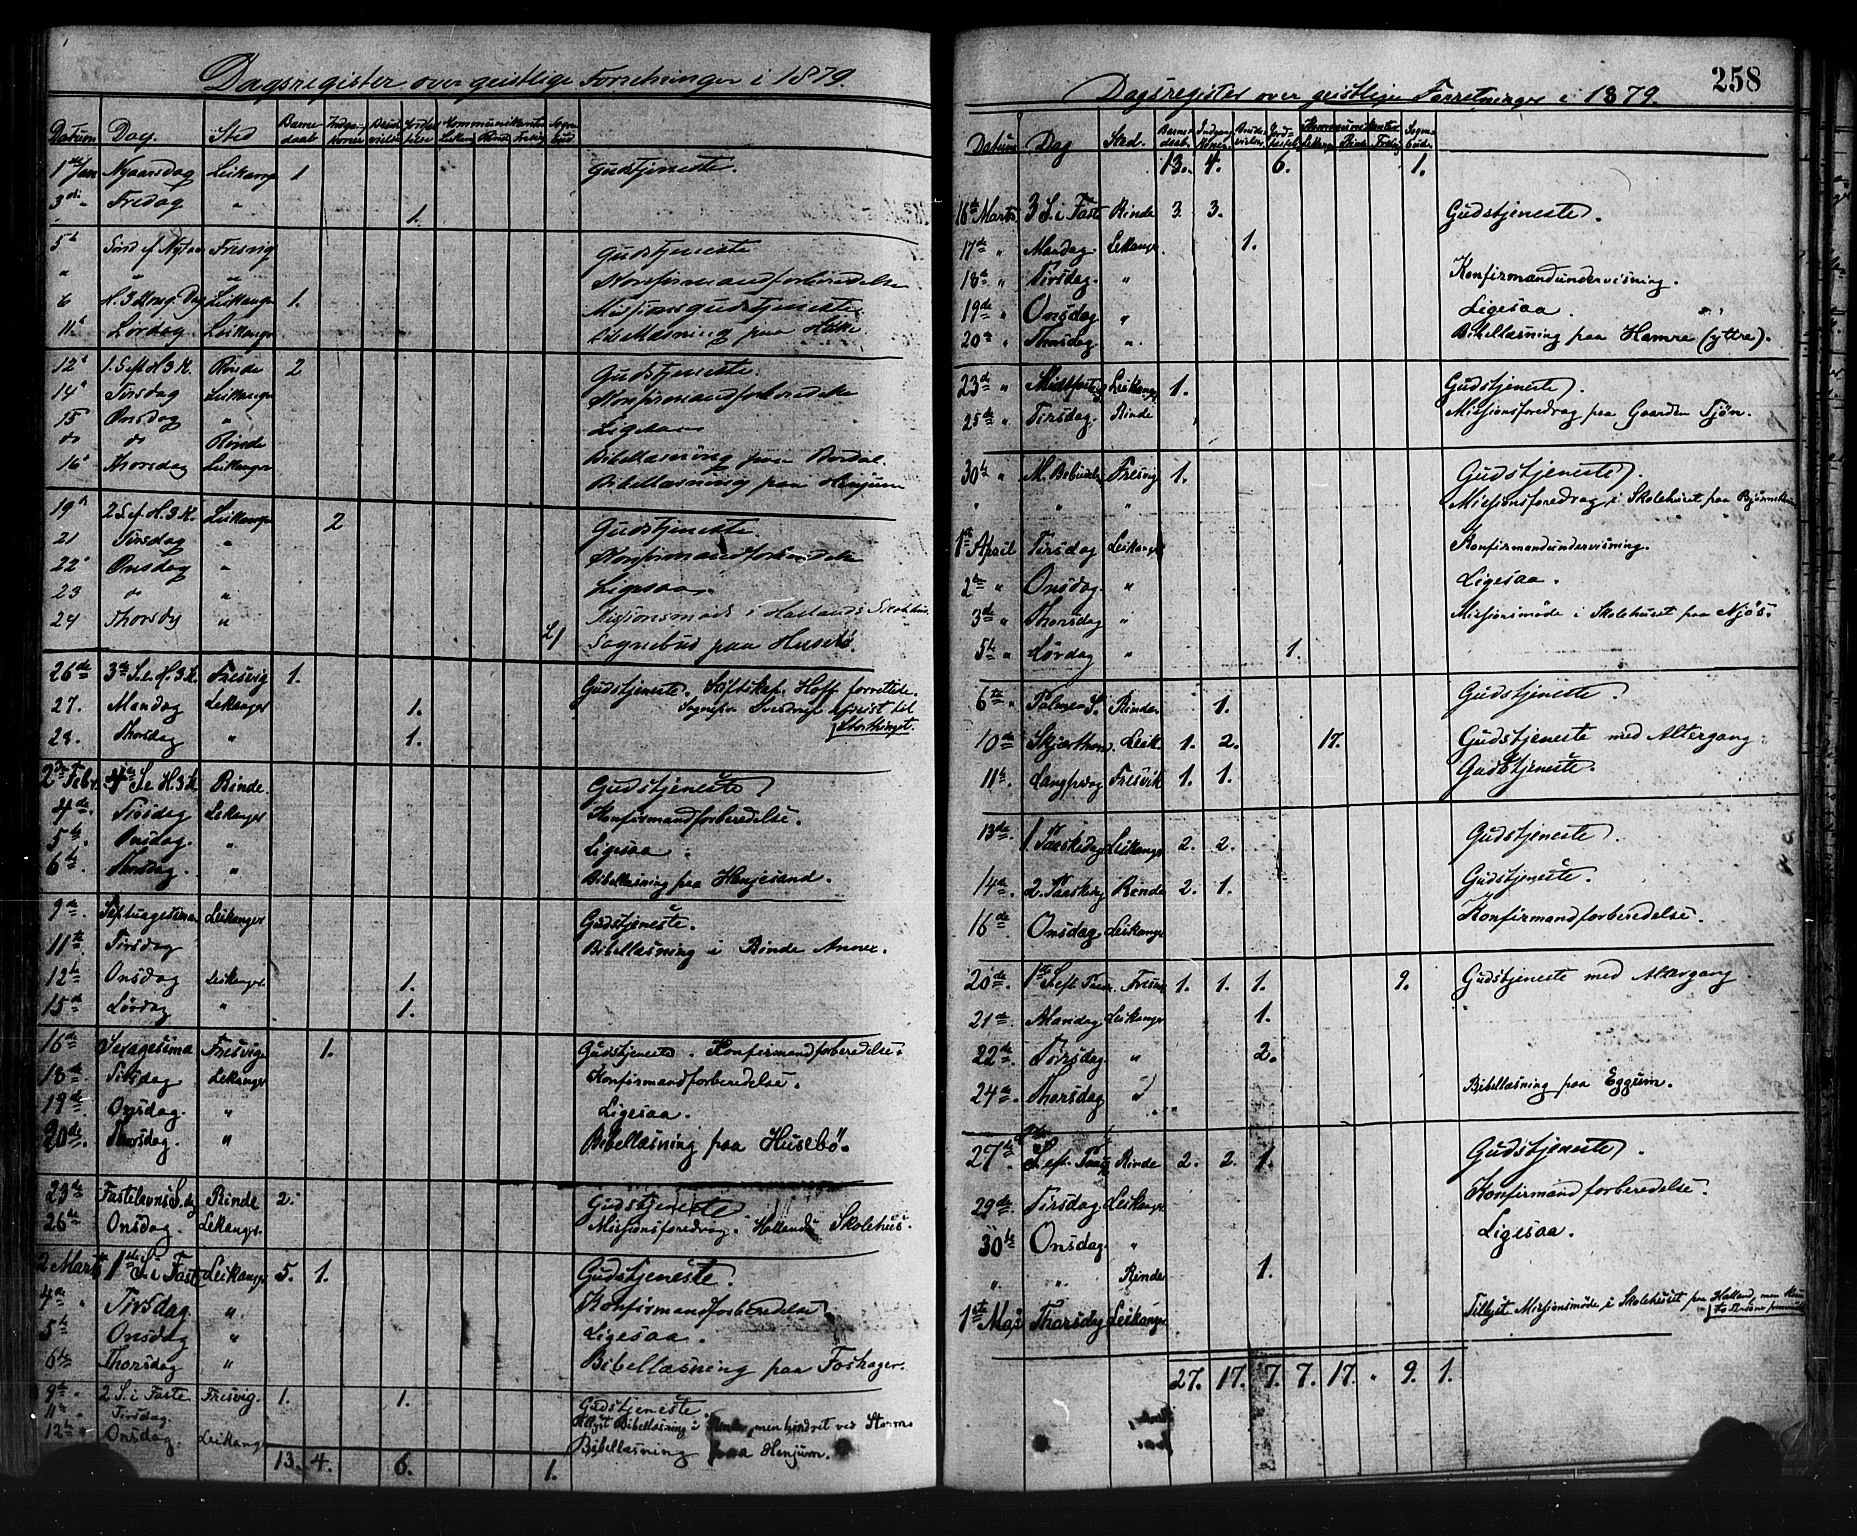 Dagsregister over geistlige Forretninger i 1879.
Datum Dag. Sted Barnedaab Indgangskoner Brudevielse Jordfæstelse Kommunikanter Leikang Rinde Fresvig Sognebud
1ste Jan Nyaarsdag Leikanger 1 Gudstjeneste.
3die " Fredag " 1.
5te Sønd ef Nytaar Fresvig Gudstjeneste
" " " Konfirmandforberedelse
6 H. 3 Kong. Dag Leikanger 1. Missionsgudstjeneste
11te Lørdag Leikanger Bibellæsning paa
12te 1. S eft H. 3 K. Rinde 2 Gudstjeneste.
14de Tirsdag Leikanger Konfirmandforberedelse
15 Onsdag " Ligesaa
do do Rinde Bibellæsning paa
16de Thorsdag Leikanger Bibellæsning paa Henjum
19de 2 S ef H. 3 K. Leikanger 2 Gudstjeneste.
21 Tirsdag " Konfirmandforberedelse
22de Onsdag " Ligesaa.
23 do "
24 Thorsdag " Missionsmøde i Hallands Skolehus
1 Sognebud paa Husebø.
26de 3die S. e. H. 3 K. Fresvig 1. Gudstjeneste. Hoff forrettede.
27. Mandag Leikanger 1. Sognepr afreist til
Storthinget.
28. Thorsdag " 1.
2den Febr. 4de S. e. H. 3 K Rinde. Gudstjeneste
4de. Tirsdag Leikanger Konfirmandforberedelse.
5te. Onsdag. " Ligesaa.
6te. Thorsdag. " Bibellæsning paa Henjesand.
9de. Septuagesima Leikanger Gudstjeneste.
11te. Tirsdag Bibellæsning i Rinde Annex.
12te Onsdag Leikanger 1.
15de Lørdag " 1.
16de Sexagesima Fresvig 1. Gudstjeneste. Konfirmandforberedelse.
18de. Tirsdag Leikanger Konfirmandforberedelse.
19de. Onsdag. " Ligesaa.
20de. Thorsdag. " Bibellæsning paa Husebø.
23de Fastelavns S. dg Rinde 2. Gudstjeneste
26de Onsdag. Leikanger. Missionsforedrag. Hallands Skolehus.
2 Marts 1ste S. i Faste Leikanger 5. 1. Gudstjeneste.
4de " Tirsdag " Konfirmandforberedelse
5te Onsdag " Ligesaa.
6te Thorsdag " Bibellæsning paa Foshager.
9de " 2 S. i Faste Fresvig. 1. 1. Gudstjeneste
11te " Tirsdag. Tillyst Bibellæsning i Rinde, men hindret ved Storm
12te " Onsdag. Leikanger Bibellæsning paa Henjum.
13. 4. 6. 1.
258
Dagsregister over geistlige Forretninger i 1879.
Datum Dag Sted. Barnedaab. Indgangskoner. Brudevielse. Jordfæstel. Kommunikanter Leikanger Rinde Fresvig Sognebud.
13. 4. 6. 1.
16de Marts 3 S. i Fast Rinde 3. 3. Gudstjeneste.
17de " Mandag. Leikanger 1.
18de " Tirsdag. " Konfirmandundervisning.
19de " Onsdag " Ligesaa.
20de " Thorsdag. " Bibellæsning paa Hamre (yttre).
23de " Midtfaste Leikanger 1. Gudstjeneste.
25de " Tirsdag. Rinde Missionsforedrag paa Gaarden Tjøn.
30te " M. Bebudels Fresvig 1. Gudstjeneste.
" " " Missionsforedrag i Skolehuset paa
1ste April Tirsdag Leikanger Konfirmandundervisning.
2den " Onsdag " Ligesaa.
3die " Thorsdag " Missionsmøde i Skolehuset paa Njøs.
5te " Lørdag " 1.
6te " Palme S. Rinde 1. Gudstjeneste.
10de Skjærthors. Leik. 1. 2. 17. Gudstjeneste med Altergang.
11te Langfredag Fresvik 1. 1. Gudstjeneste.
13de 1 Paaskedag Leikanger 2. 2. Gudstjeneste.
14de 2. Paaskedag Rinde 2. 1. Gudstjeneste.
16de Onsdag. Leikanger Konfirmandforberedelse.
20de. 1ste S. eft. Paas. Fresvig 1. 1. 1. 9. Gudstjeneste med Altergang
21de. Mandag Leikanger 1.
22de. Tirsdag " 2.
24de. Thorsdag " Bibellæsning paa Eggum.
27de S. eft. Paas Rinde 2. 2. 1. Gudstjeneste.
29de Tirsdag. Leikanger Konfirmandforberedelse.
30te Onsdag. " Ligesaa.
" " Rinde 1.
1ste Mai Thorsdag Leikanger Tillyst Missionsmøde i Skolehuset paa Halland, men kun
to
27. 17. 7. 7. 17. " 9. 1.